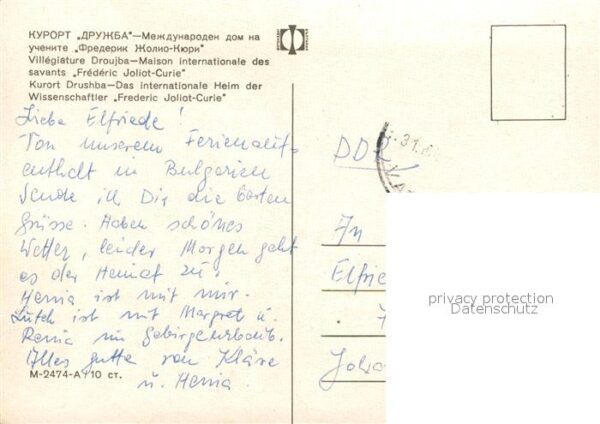 КУРОРТ „ДРУЖБА"—Международен дом на
учените „Фредерик Жолио-Кюри"
Villégiature Droujba—Maison internationale des
savants „Frédéric Joliot-Curie"
Kurort Drushba—Das internationale Heim der
Wissenschaftler „Frederic Joliot-Curie"
Liebe Elfriede!
Von unserem Ferienauf=
enthalt in Bulgarien
sende ich Dir die besten
Grüsse. Haben schönes
Wetter, leider Morgen geht
es der Heimat zu.
Henia ist mit mir.
ist mit Margret u.
Renia im
Alles gute von Kläre
u. Henia.
М-2474-А 10 ст.
DDR
31.
An
Elfrie
Joha
privacy protection
Datenschutz